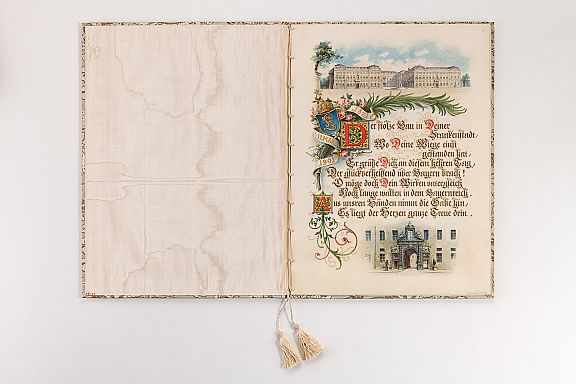 12. März
1821
1901
Der stolze Bau in Deiner
Frankenstadt,
Wo Deine Wiege einst
gestanden hat,
Er grüßt Dich an diesem hehren Tag,
Der glückverheißend über Bayern brach!
O möge doch Dein Wirken unvergleich
Noch lange walten in dem Bayernreich.
Aus unsren Händen nimm die Gabe hin,
Es liegt der Herzen ganze Treue drin.